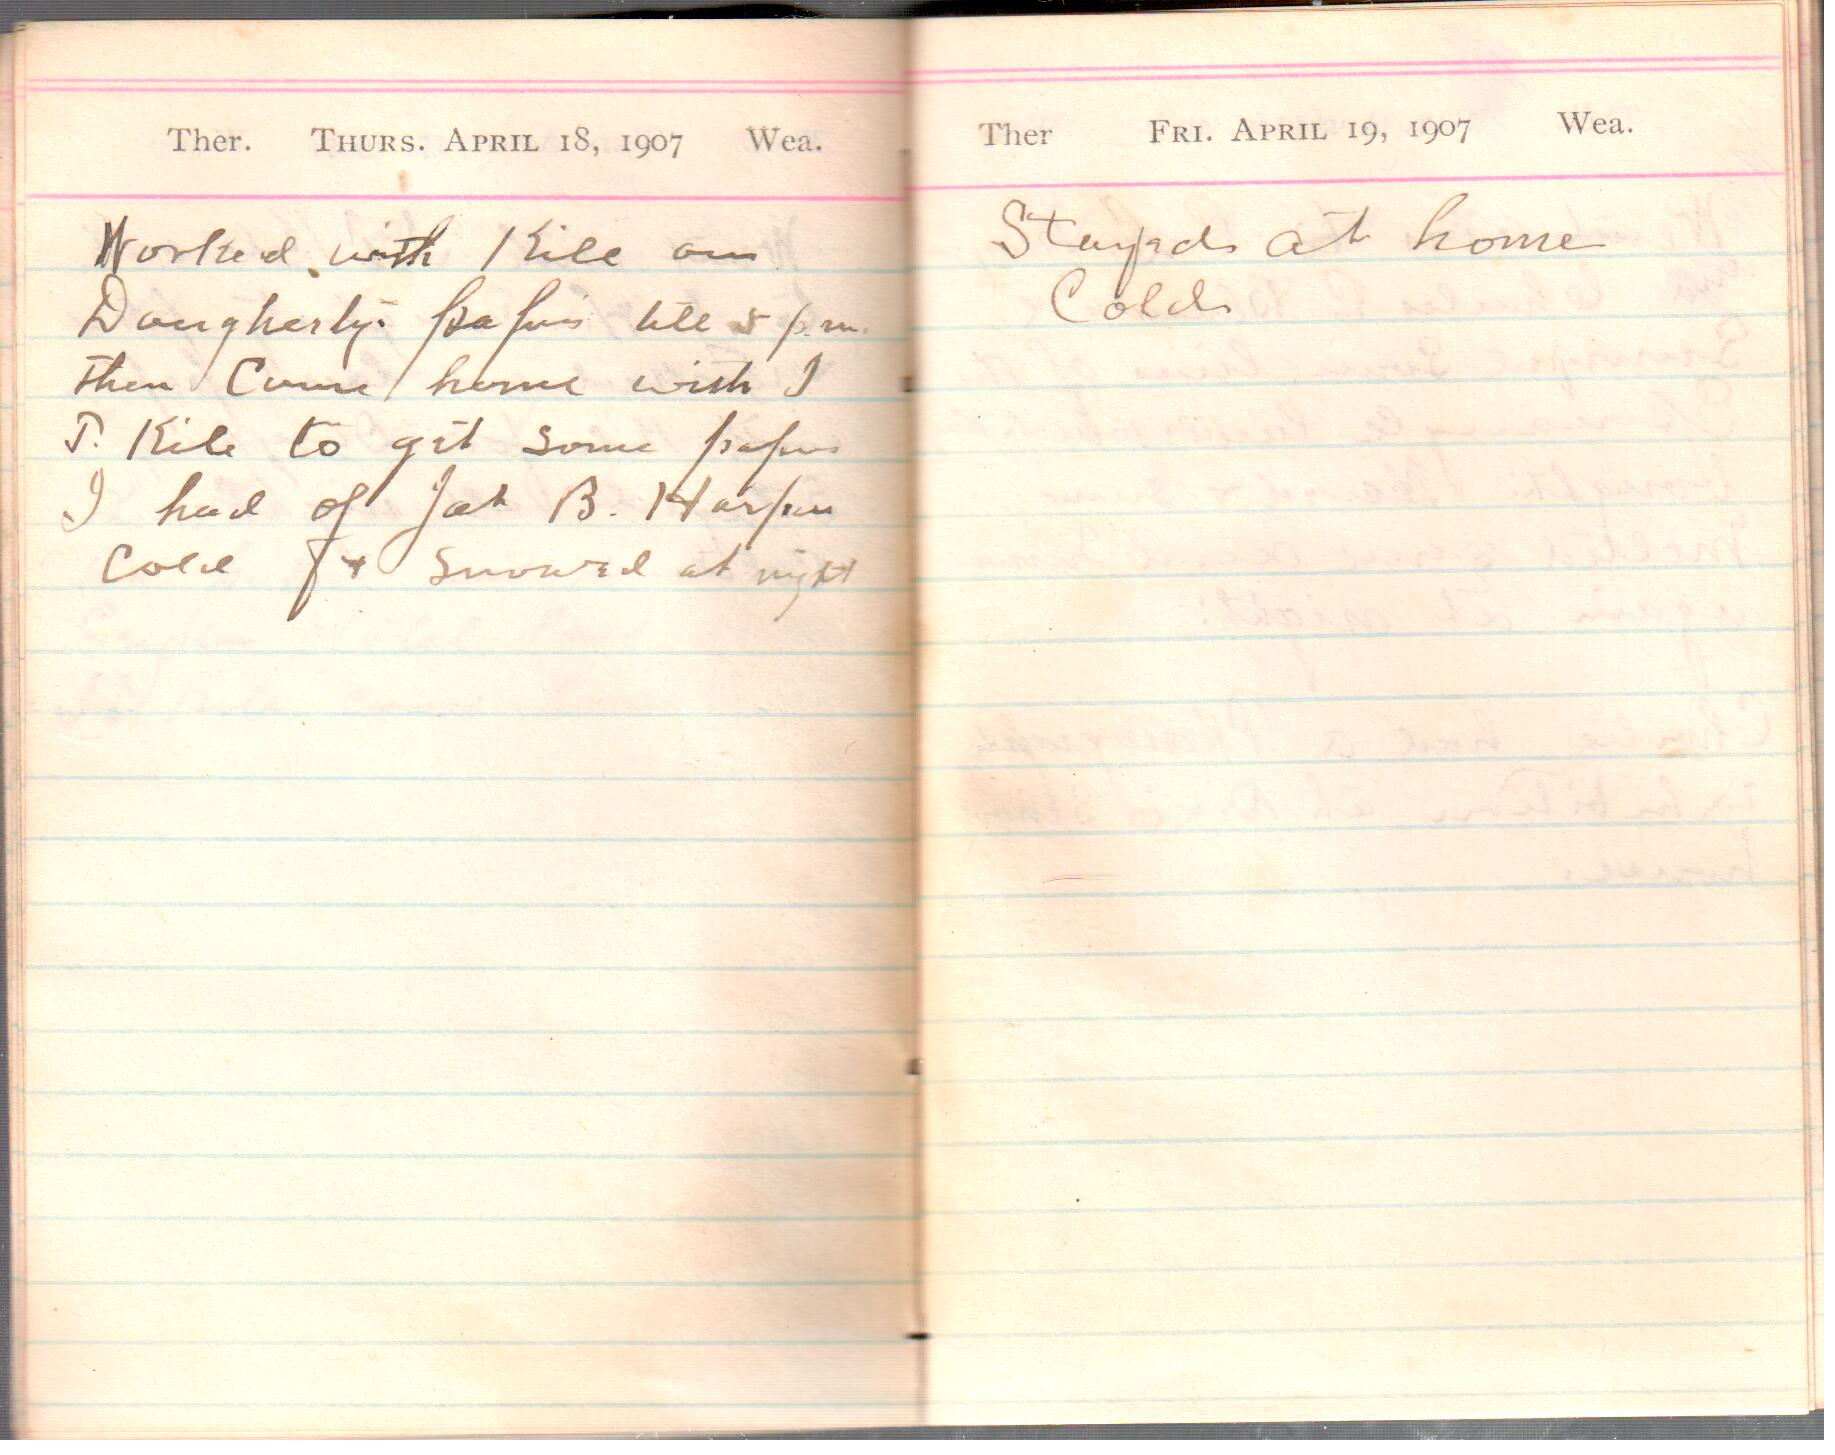 Ther. THURS. APRIL 18, 1907 Wea.
Worked with Kile on
Dougherty's papers till 5 p.m.
then Come home with I
P. Kile to get some papers
I had of Jak B. Harper
Cold & Snowed at night
Ther FRI. APRIL 19, 1907 Wea.
Stayed at home
Cold